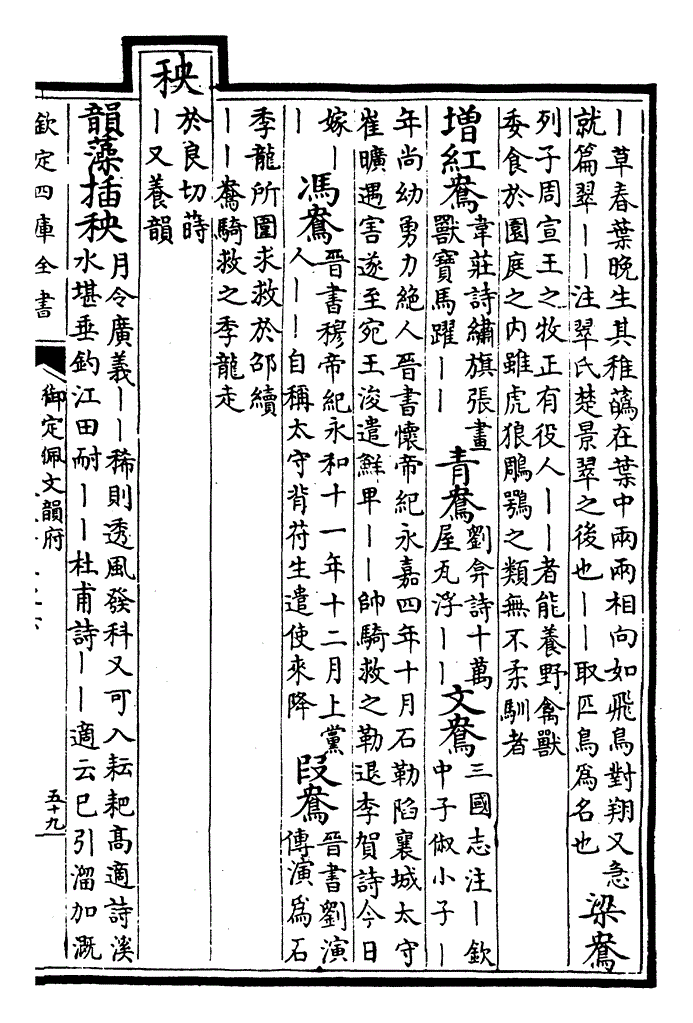 ｜草春葉晚生其稚蘤在葉中兩兩相向如飛鳥對翔又急
就篇翠｜｜注翠氏楚景翠之後也｜｜取匹鳥爲名也
梁鴦
列子周宣王之牧正有役人｜｜者能養野禽獸
委食於園庭之内雖虎狼鵰鶚之類無不柔馴者
增紅鴦
韋莊詩繡旗張畫
獸寶馬躍｜｜
青鴦
劉弇詩十萬
屋瓦浮｜｜
文鴦
三國志注｜欽
中子俶小子｜
年尚幼勇力絶人晉書懷帝紀永嘉四年十月石勒陷襄城太守
崔曠遇害遂至宛王浚遣鮮卑｜｜帥騎救之勒退李賀詩今日
嫁｜
｜
馮鴦
晉書穆帝紀永和十一年十二月上黨
人｜｜自稱太守背苻生遣使來降
段鴦
晉書劉演
傳演爲石
季龍所圍求救於邵續
｜｜騎救之季龍走
秧
於良切蒔
｜又養韻
韻藻插秧
月令廣義｜｜稀則透風發科又可入耘耙高適詩溪
水堪垂釣江田耐｜｜杜甫詩｜｜適云已引溜加溉
欽定四庫全書
御定佩文韻府
五十九